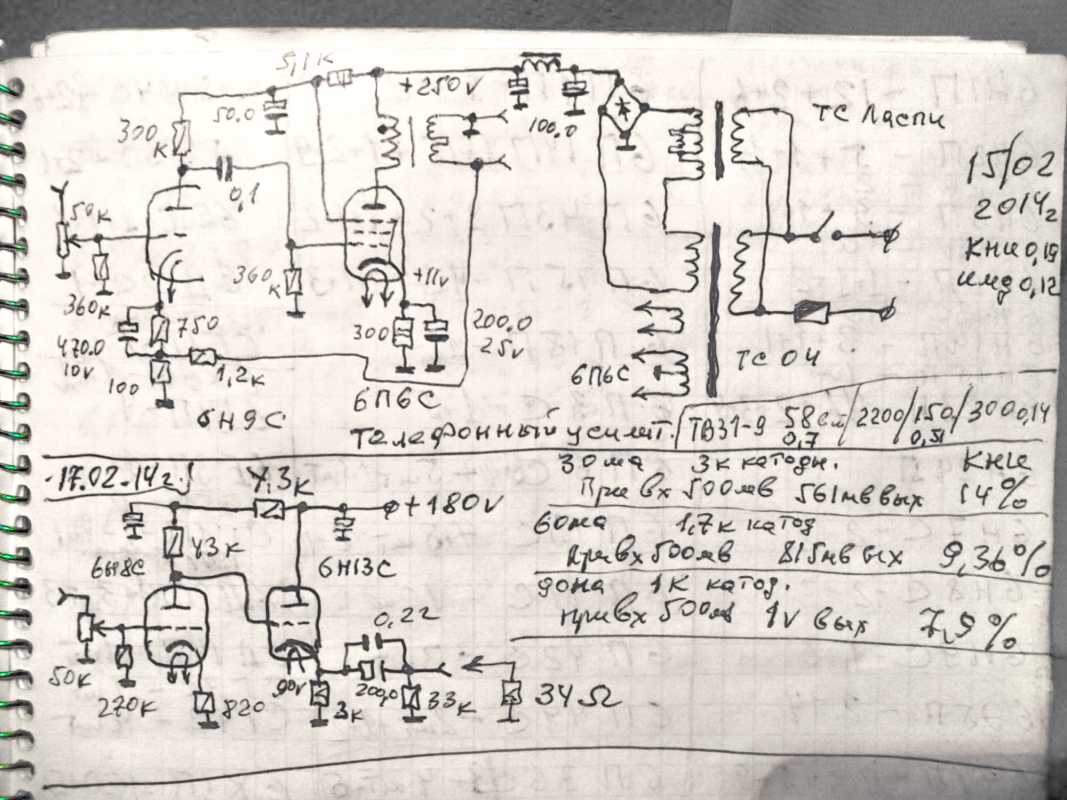 5,1к
+250v
50.0
100.0
ТС Ласпи
300
к
0,1
15/02
2014г
50к
кни 0,19
имд 0,12
360
к
+11v
360к
750
300
200.0
25v
470.0
10v
100
1,2к
6П6С
ТС 04
6Н9С
6П6С
Телефонный усилит.
ТВ31-9 58см/2200/150/3000,14
0,7 0,51
17.02.14г.
4,3к
30ма 3к катодн. кни
При вх 500мв 561мв вых 14%
+180v
43к
60ма 1,7к катод
при вх 500мв 815мв вых 9,36%
6Н8С
6Н13С
1к катод.
при вх 500мв 1v вых 7,9%
0,22
50к
90v
200,0
270к
820
3к
33к
34Ω